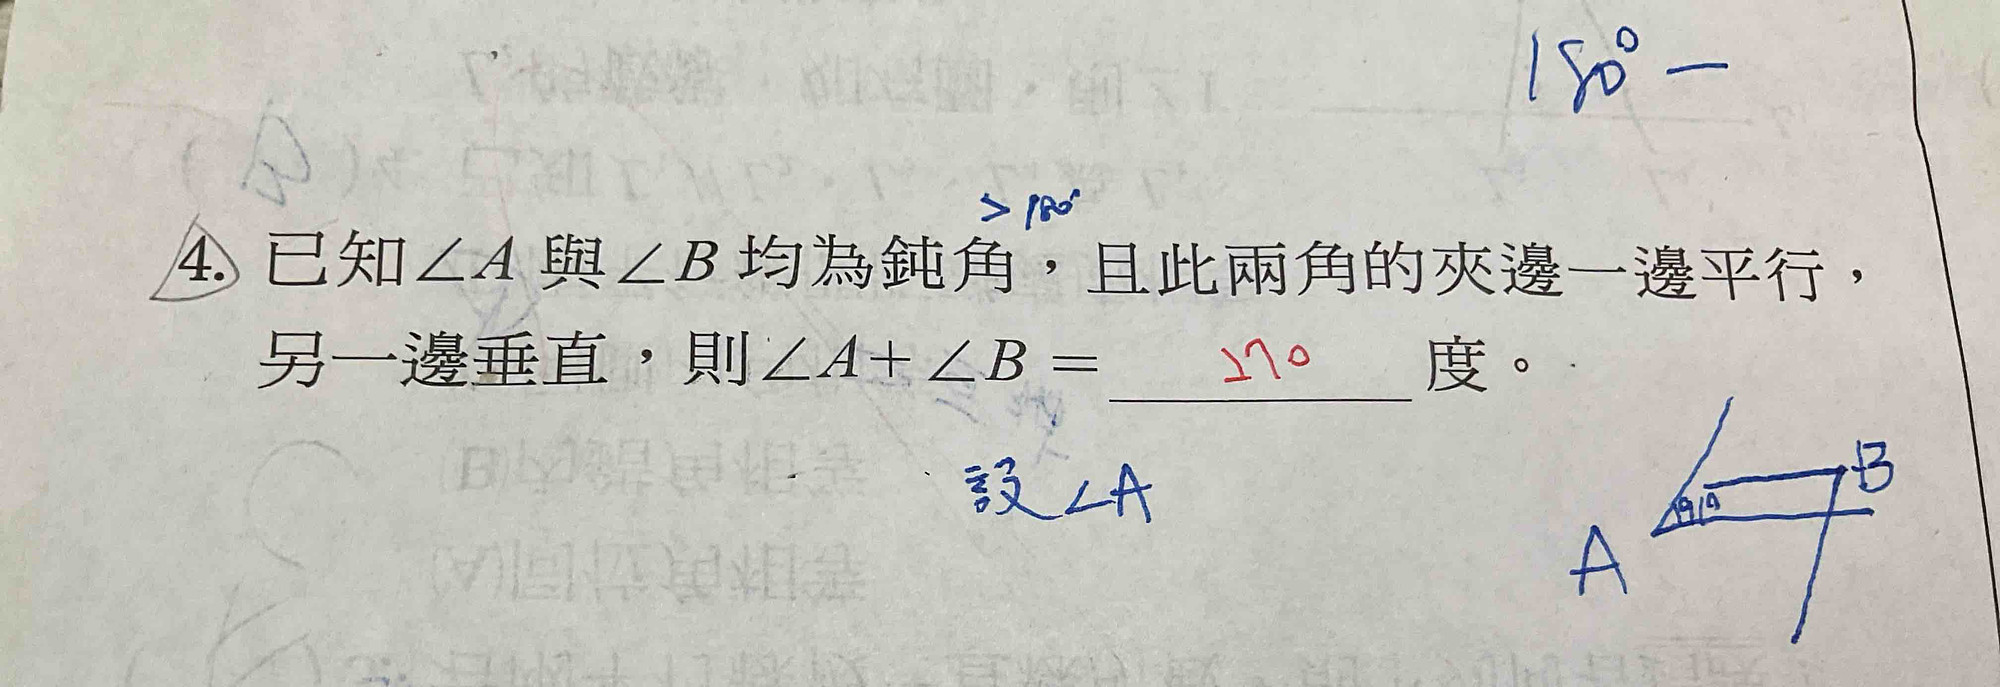 180°－
＞180°
4. 已知∠A 與∠B 均為鈍角，且此兩角的夾邊一邊平行，
另一邊垂直，則∠A＋∠B＝ 270 度。
設∠A
B
A